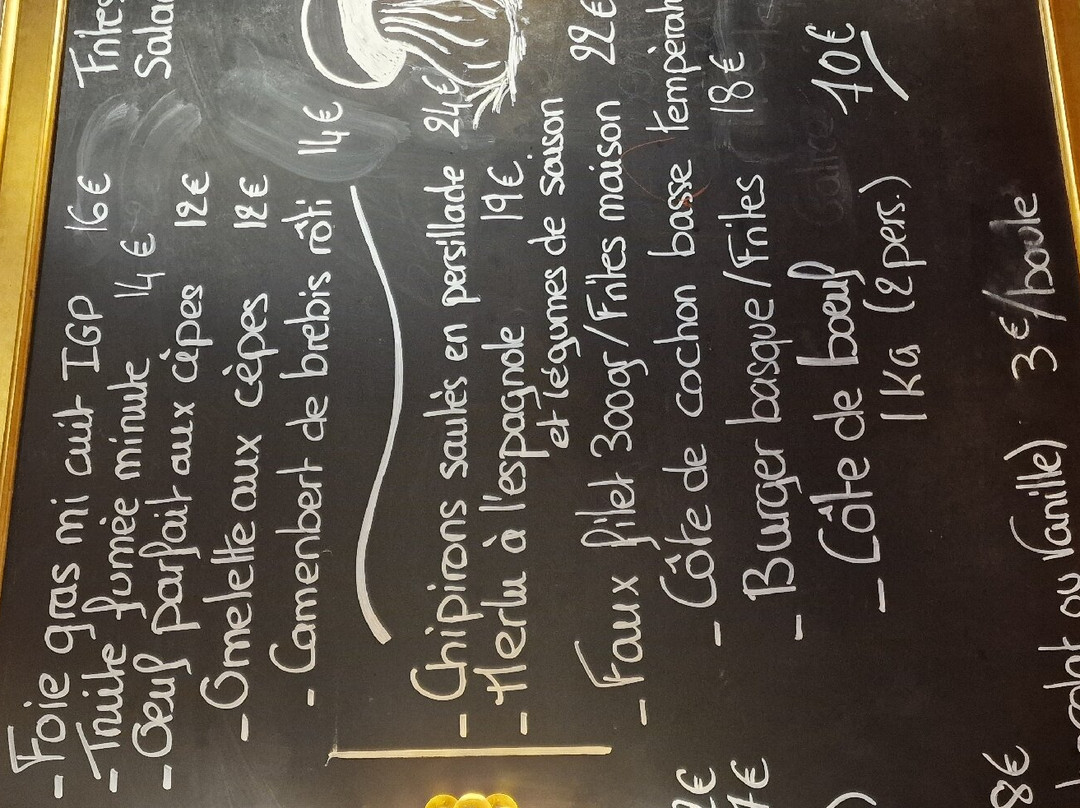 - Foie gras mi cuit IGP 16€
- Truite fumée minute 14€
- Oeuf parfait aux cèpes 12€
- Omelette aux cèpes 12€
- Camenbert de brebis rôti 14€
- Chipirons sautés en persillade 24€
- Merlu à l'espagnole 19€
et légumes de saison
- Faux filet 300gr/Frites maison 22€
- Côte de cochon basse tempéra
- Burger basque/Frites 18€
- Côte de boeuf 70€
1 Kg (2 pers.)
ou Vanille) 3€/boule
Frites
Salad
8€